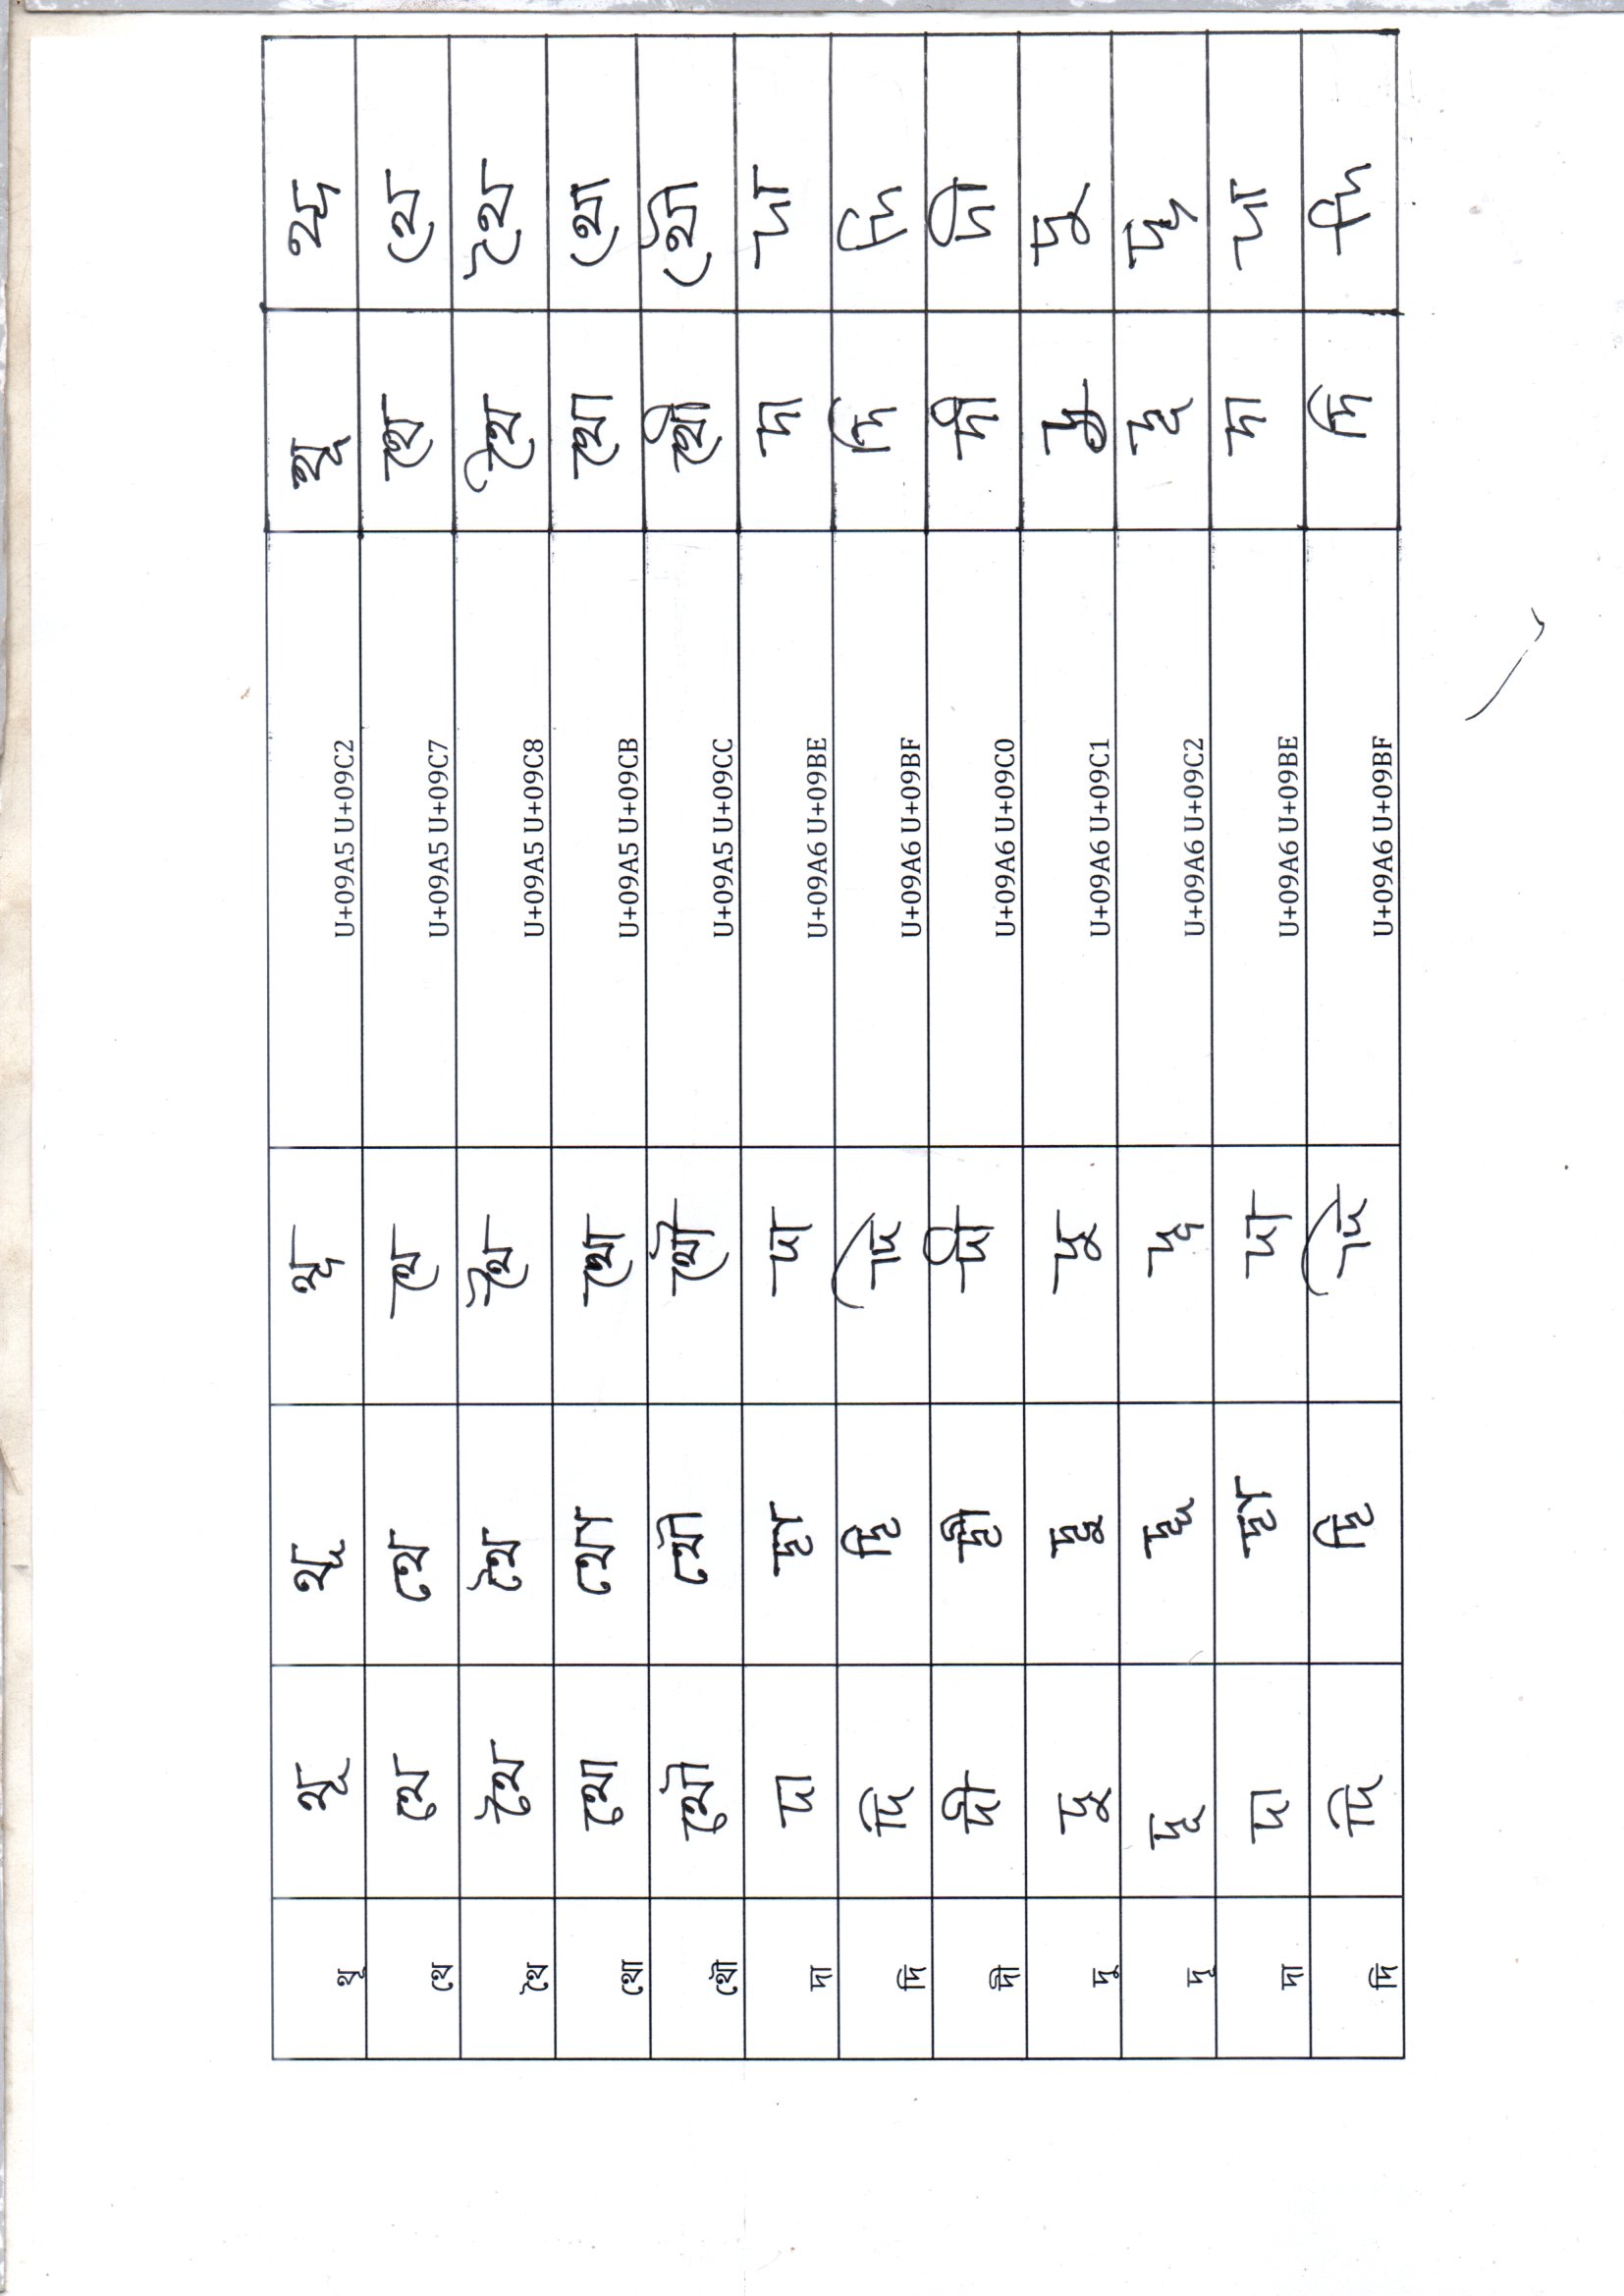 থূ থূ থূ থূ U+09A5 U+09C2 থূ থূ
থে থে থে থে U+09A5 U+09C7 থে থে
থৈ থৈ থৈ থৈ U+09A5 U+09C8 থৈ থৈ
থো থো থো থো U+09A5 U+09CB থো থো
থৌ থৌ থৌ থৌ U+09A5 U+09CC থৌ থৌ
দা দা দা দা U+09A6 U+09BE দা দা
দি দি দি দি U+09A6 U+09BF দি দি
দী দী দী দী U+09A6 U+09C0 দী দী
দু দু দু দু U+09A6 U+09C1 দু দু
দূ দূ দূ দূ U+09A6 U+09C2 দূ দূ
দা দা দা দা U+09A6 U+09BE দা দা
দি দি দি দি U+09A6 U+09BF দি দি